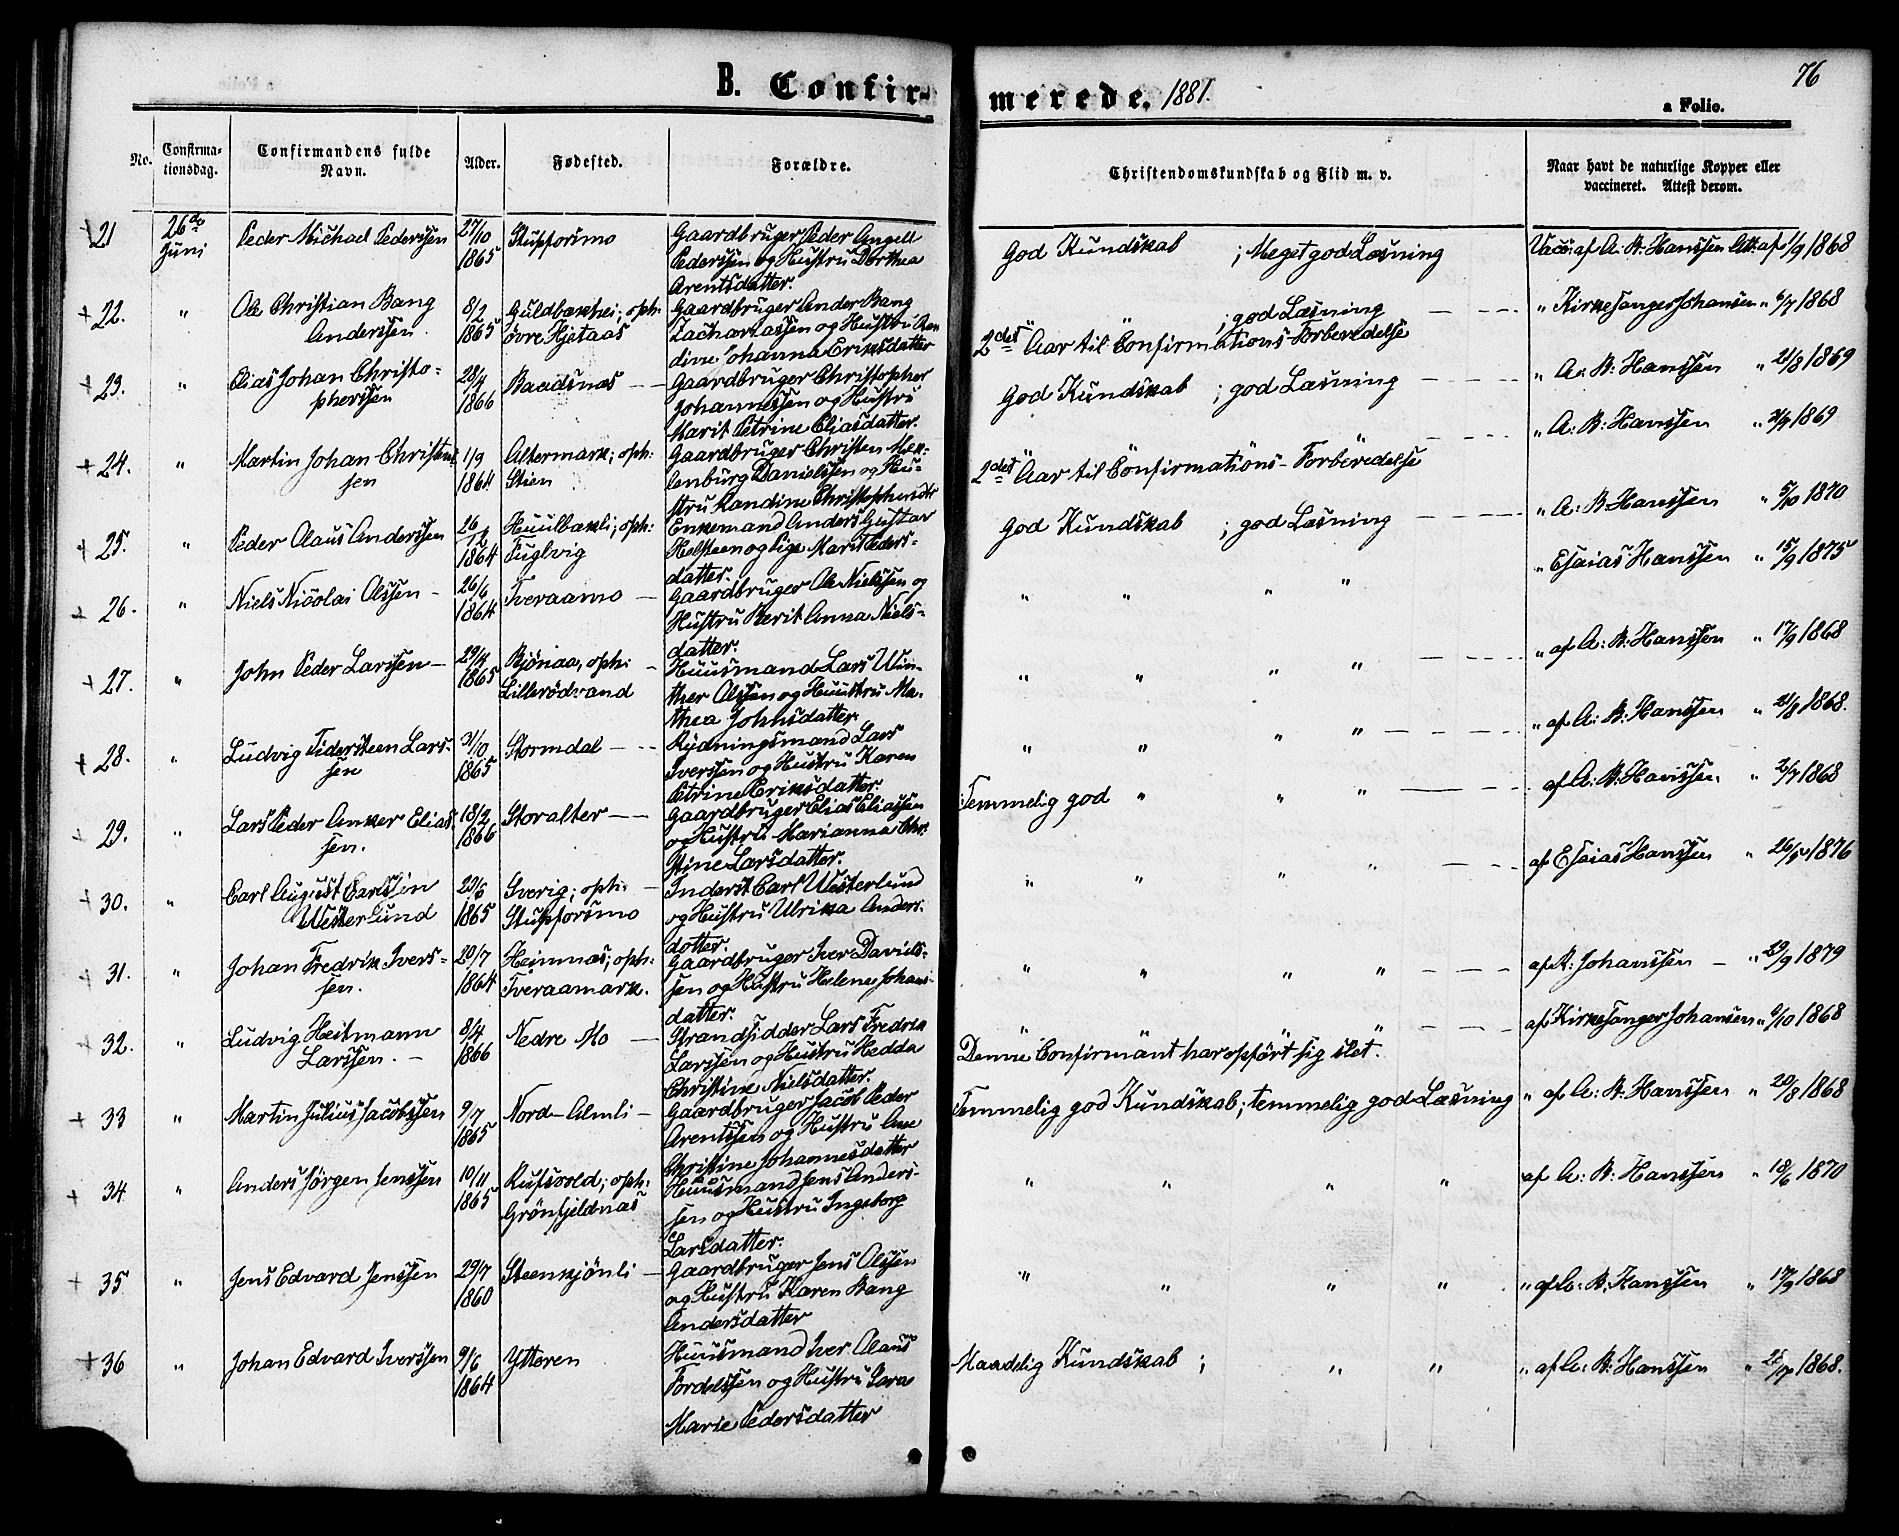 76
B. Confir-
merede. 1881.
a Folio.
No.
Confirma-
tionsdag.
Confirmandens fulde
Navn.
Alder.
Fødested.
Forældre.
Christendomskundskab og Flid m. v.
Naar havt de naturlige Kopper eller
vaccineret. Attest derom.
21
26de
Juni
Peder Michael Pederssen
27/10
1865
Stupforsmo
Gaardbruger Peder Angell
Pederssen og Hustru Dorthea
Arentsdatter.
God Kundskab ; Meget god Læsning
Vacc: af A. B. Hanssen Att: af 1/9 1868
22.
"
Ole Christian Bang
Anderssen
8/2
1865
Guldbakhei; oph:
øvre Hjetaas
Gaardbruger Ander Bang
Zachariassen og Hustru Ran
dine Johanna Eriksdatter
" " ; god Læsning
2det Aar til Confirmations-Forberedelse
" Kirkesanger Johansen " 6/7 1868
23.
"
Elias Johan Christo-
pherssen
28/4
1866
Baadsnæs
Gaardbruger Christopher
Johannessen og Hustru
Marit Petrine Eliasdatter.
God Kundskab ; god Læsning
" A. B. Hanssen " 21/8 1869
24.
"
Martin Johan Christens
sen
1/9
1864
Altermark; oph:
Stien
Gaardbruger Christen Mek-
lenburg Danielssen og Hu-
stru Randine Christophersdtr
" " " "
2det Aar til Confirmations-Forberedelse
" A: B: Hanssen " 21/9 1869
25.
"
Peder Olaus Anderssen
26/12
1864
Huulbækli; oph:
Fuglvig
Enkemand Anders Gustav
Holsteen og Pige Marit Peders-
datter.
God Kundskab ; god Læsning
" A: B Hanssen " 5/10 1870
26.
"
Niels Nicolai Olssen
26/6
1864
Tveraamo
Gaardbruger Ole Nielssen og
Hustru Berit Anna Niels-
datter.
" " " "
" Esaias Hanssen " 15/9 1875
27.
"
John Peder Larssen
29/4
1865
Bjønaa, oph:
Lillerødvand
Huusmand Lars Win-
ther Olssen og Huustru Ma-
thea Johnsdatter
" " " "
" af A: B: Hanssen " 17/9 1868
28.
"
Ludvig Tidersteen Lars-
sen
31/10
1865
Stormdal
Rydningsmand Lars
Iverssen og Hustru Karen
Petrine Eriksdatter.
" " " "
" af A: B: Hanssen " 21/8 1868.
29.
"
Lars Peder Anker Elias-
sen.
18/2
1866
Storalter
Gaardbruger Elias Eliassen
og Hustru Marianna Chri-
stine Larsdatter.
Temmelig god " " "
af A: B. Hanssen. " 2/7 1868
30.
"
Carl August Carlssøn
Westerlund
23/6
1865
Sverig; oph:
Stupforsmo
Inderst Carl Westerlund
og Hustru Ulrika Anders-
dotter.
" " " "
af Esaias Hanssen " 26/5 1876
31.
"
Johan Fredrik Ivers-
sen.
20/7
1864
Heimnæs; oph:
Tveraamark.
Gaardbruger Iver Daniels-
sen og Hustru Helene Johans-
datter.
" " " "
af A. Johanssen " 29/9 1879
32.
"
Ludvig Heitmann
Larssen.
8/4
1866
Nedre Mo
Strandsidder Lars Fredrik
Larssen og Hustru Hedda
Christine Nielsdatter.
" " " "
Denne Confirmant har opført sig slet.
af Kirkesanger Johansen " 6/10 1868
33
"
Martin Julius Jacobssen
9/7
1865
Nord-Almli
Gaardbruger Jacob Peder
Arentssen og Hustru Ane
Christine Johannesdatter
Temmelig god Kundskab; temmelig god Læsning
" af A: B. Hanssen " 20/8 1868
34
"
Anders Jørgen Jenssen
10/11
1865
Rufsvold; oph:
Grønfjeldnæs
Huusmand Jens Anders-
sen og Hustru Ingeborg
Larsdatter.
" " " "
af A: B: Hanssen " 18/6 1870
35
"
Jens Edvard Jenssen
29/7
1860
Steenkjønli
Gaardbruger Jens Olssen
og Hustru Karen Bang
Andersdatter
" " " "
" af A: B. Hanssen " 17/9 1868
36
"
Johan Edvard Iverssen
9/6
1864
Ytteren
Huusmand Iver Olaus
Tordelssen og Hustru Sara
Marie Pedersdatter
Maadelig Kundskab ; " "
" af A: B: Hanssen " 1868.